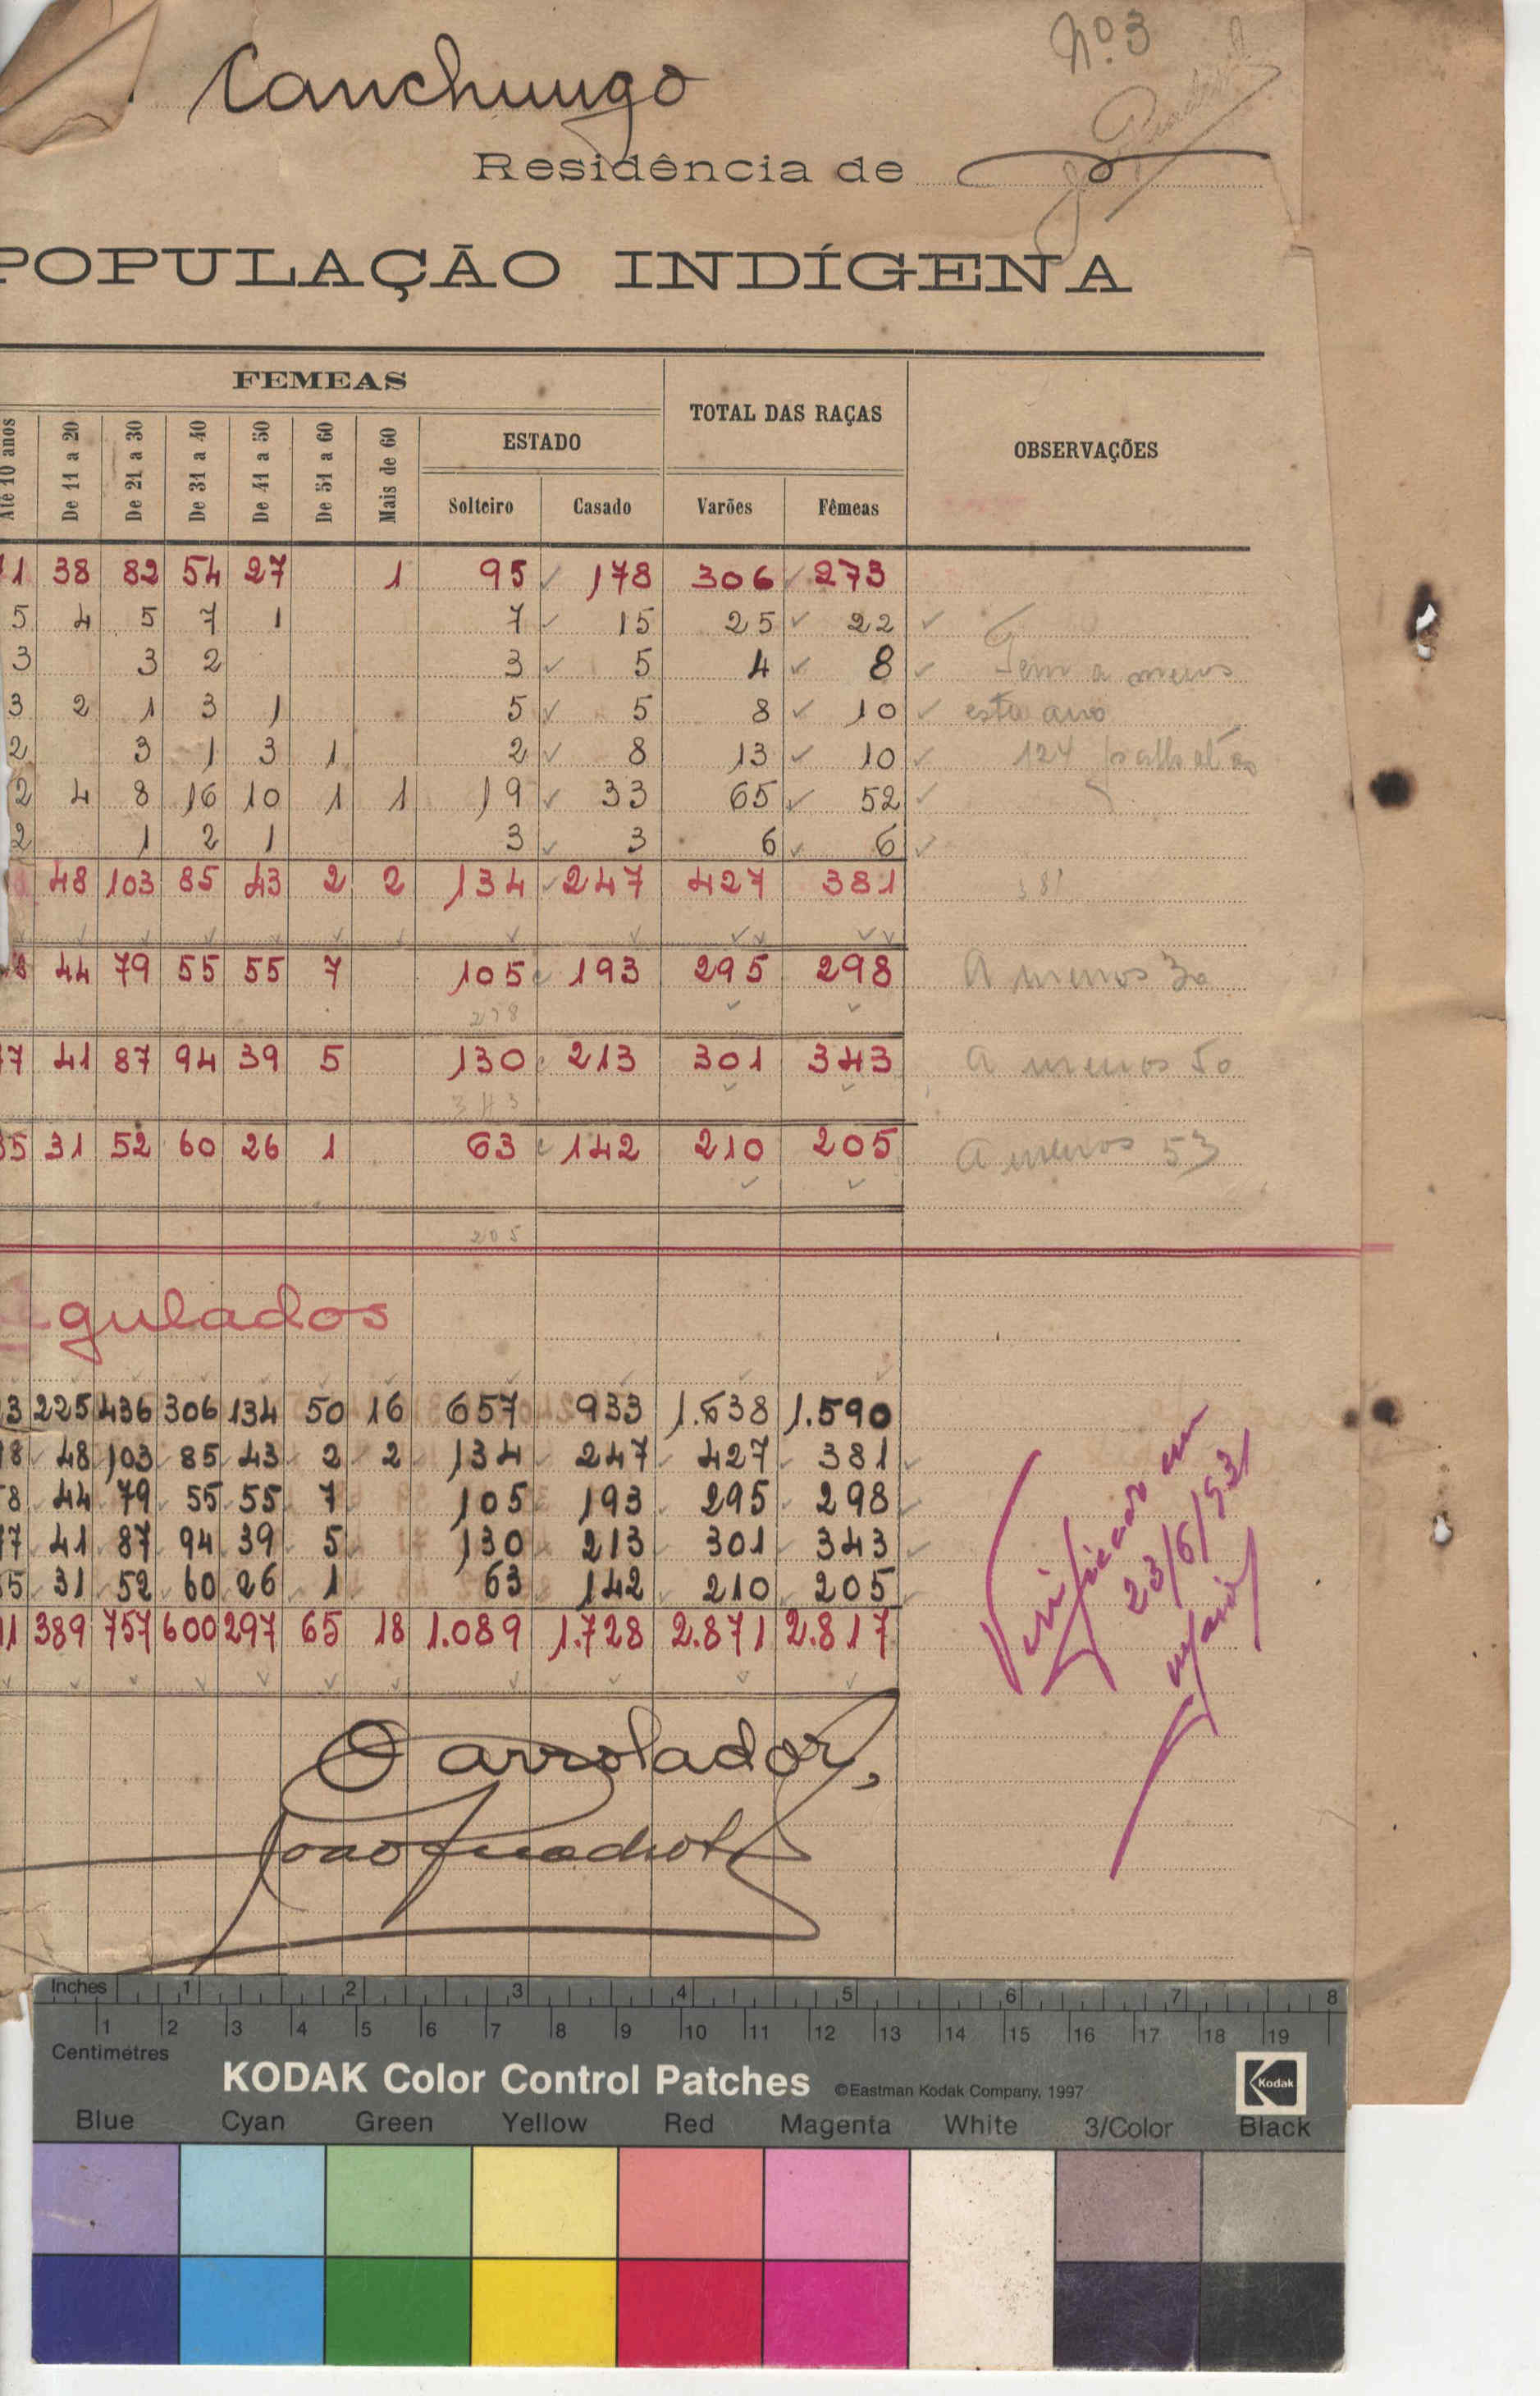 Nº 3
Canchungo
Residência de
POPULAÇÃO INDÍGENA
FEMEAS
TOTAL DAS RAÇAS
OBSERVAÇÕES
ESTADO
Até 10 anos De 11 a 20 De 21 a 30 De 31 a 40 De 41 a 50 De 51 a 60 Mais de 60 Solteiro Casado Varões Fêmeas
1 38 82 54 27 1 95 178 306 273
5 4 5 7 1 7 15 25 22
3 3 2 3 5 4 8 Tem a menos
3 2 1 3 1 5 5 8 10 este ano
2 3 1 3 1 2 8 13 10 124
2 4 8 16 10 1 1 19 33 65 52
2 1 2 1 3 3 6 6
48 103 85 43 2 2 134 247 427 381 381
8 44 79 55 55 7 105 193 295 298 A menos 30
298
7 41 87 94 39 5 130 213 301 343 A menos 50
343
35 31 52 60 26 1 63 142 210 205 A menos 53
205
egulados
3 225 436 306 134 50 16 657 933 1.638 1.590
8 48 103 85 43 2 2 134 247 427 381
8 44 79 55 55 7 105 193 295 298
7 41 87 94 39 5 130 213 301 343
5 31 52 60 26 1 63 142 210 205
1 389 757 600 297 65 18 1.089 1.728 2.871 2.817
Verificado em
23/6/931
O arrolador,
Inches 1 2 3 4 5 6 7 8
1 2 3 4 5 6 7 8 9 10 11 12 13 14 15 16 17 18 19
Centimetres
KODAK Color Control Patches ©Eastman Kodak Company, 1997 Kodak
Blue Cyan Green Yellow Red Magenta White 3/Color Black